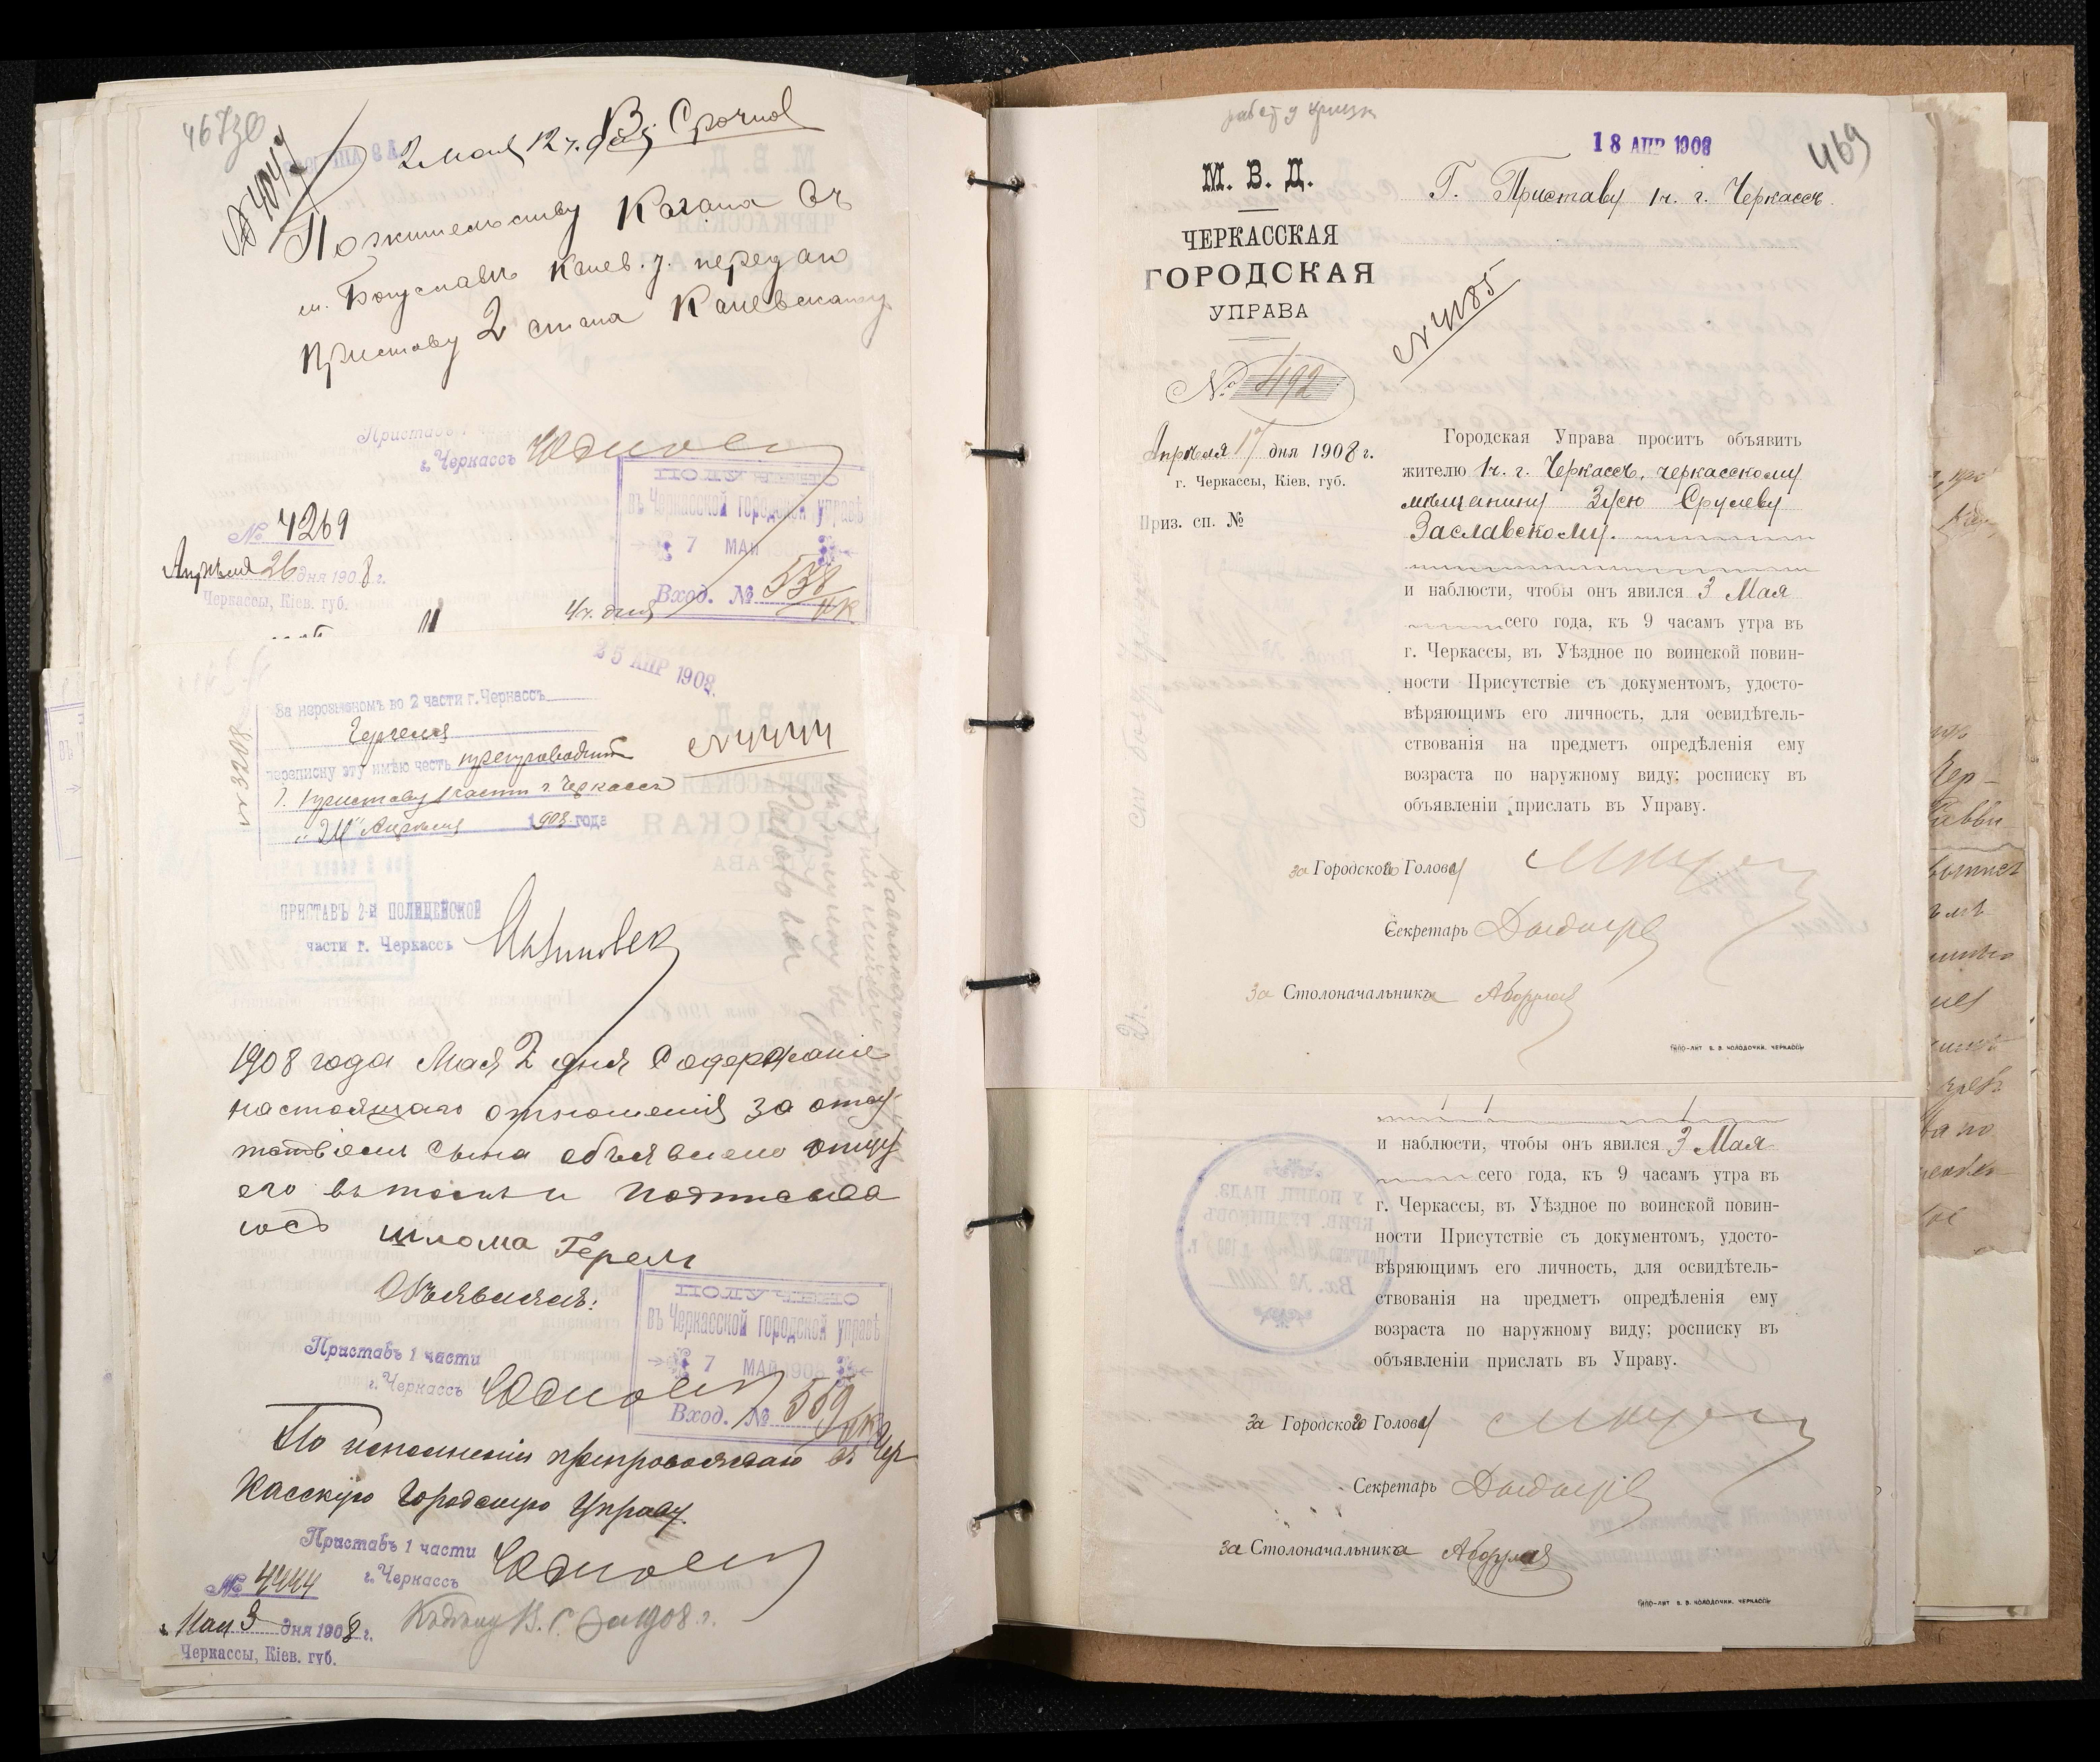 467зв
№ 4047
2 мая 12 ч. дня Срочно
По жительству Кагана въ
м. Богуславъ Канев. у. передаю
Приставу 2 стана Каневскаго у.
Приставъ 1 части
г. Черкассъ
ПОЛУЧЕНО
въ Черкасской городской управѣ
7 МАЙ 1908
Вход. № 538
№ 4269
Апрѣля 26 дня 1908 г.
Черкассы, Кіев. губ.
25 АПР 1908
№ 3208
За нерозыскомъ во 2 части г. Черкассъ
Гереля
переписку эту имѣю честь препроводить
г. Приставу 1 части г. Черкассъ
„24" Апрѣля 1908 года
№ 4444
ПРИСТАВЪ 2-й ПОЛИЦЕЙСКОЙ
части г. Черкассъ
1908 года Мая 2 дня Содержаніе
настоящаго отношенія за отсу-
тствіемъ сына объявлено отцу
его въ томъ и подписыва
юсь Шлома Герель
Объявилъ:
Приставъ 1 части
г. Черкассъ
ПОЛУЧЕНО
въ Черкасской городской управѣ
7 МАЙ 1908
Вход. № 559
По исполненіи препровождаю въ Чер-
касскую Городскую Управу.
Приставъ 1 части
г. Черкассъ
№ 4444
Мая 3 дня 1908 г.
Черкассы, Кіев. губ.
1908 г.
18 АПР 1908
469
М. В. Д.
Г. Приставу 1 ч. г. Черкассъ.
ЧЕРКАССКАЯ
ГОРОДСКАЯ
УПРАВА
№ 4185
№ 492
Апрѣля 17 дня 1908 г.
г. Черкассы, Кіев. губ.
Приз. сп. №
Городская Управа проситъ объявить
жителю 1 ч. г. Черкассъ, черкасскому
мѣщанину Зусю Срулеву
Заславскому.
и наблюсти, чтобы онъ явился 3 Мая
сего года, къ 9 часамъ утра въ
г. Черкассы, въ Уѣздное по воинской повин-
ности Присутствіе съ документомъ, удосто-
вѣряющимъ его личность, для освидѣтель-
ствованія на предметъ опредѣленія ему
возраста по наружному виду; росписку въ
объявленіи прислать въ Управу.
за Городского Голову
Секретарь
за Столоначальника
Типо-лит В. В. Колодочки. Черкассы
и наблюсти, чтобы онъ явился 3 Мая
сего года, къ 9 часамъ утра въ
г. Черкассы, въ Уѣздное по воинской повин-
ности Присутствіе съ документомъ, удосто-
вѣряющимъ его личность, для освидѣтель-
ствованія на предметъ опредѣленія ему
возраста по наружному виду; росписку въ
объявленіи прислать въ Управу.
за Городского Голову
Секретарь
за Столоначальника
Типо-лит В. В. Колодочки. Черкассы